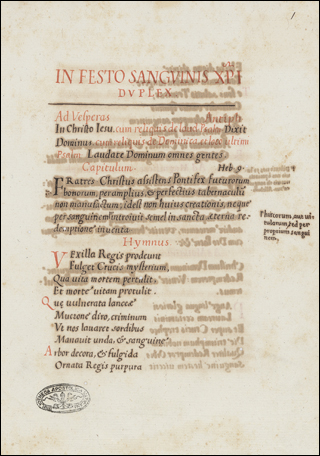 IN FESTO SANGUINIS XPI
DVPLEX
Ad Vesperas
In Christo Iesu, cum reliquis de laud. Psalm. Dixit
Dominus cum reliquis de Dominica, et loco ultimi
Psalmi Laudate Dominum omnes gentes
Capitulum Heb. 9.
FRatres Christus assistens Pontifex futurorum
bonorum, per amplius, & perfectius tabernaculū
non manufactum, idest non huius creationis, neque
per sanguinem introiuit semel in sancta, æterna re-
demptione inuenta
hircorum, aut ui-
tulorum, sed per
proprium sangui
nem,
Hymnus
VExilla Regis prodeunt
Fulget Crucis mysterium,
Qua uita mortem pertulit
Et morte uitam protulit.
Quę uulnerata lanceæ
Mucrone diro, criminum
Vt nos lauaret sordibus
Manauit unda, & sanguine
Arbor decora, & fulgida
Ornata Regis purpura